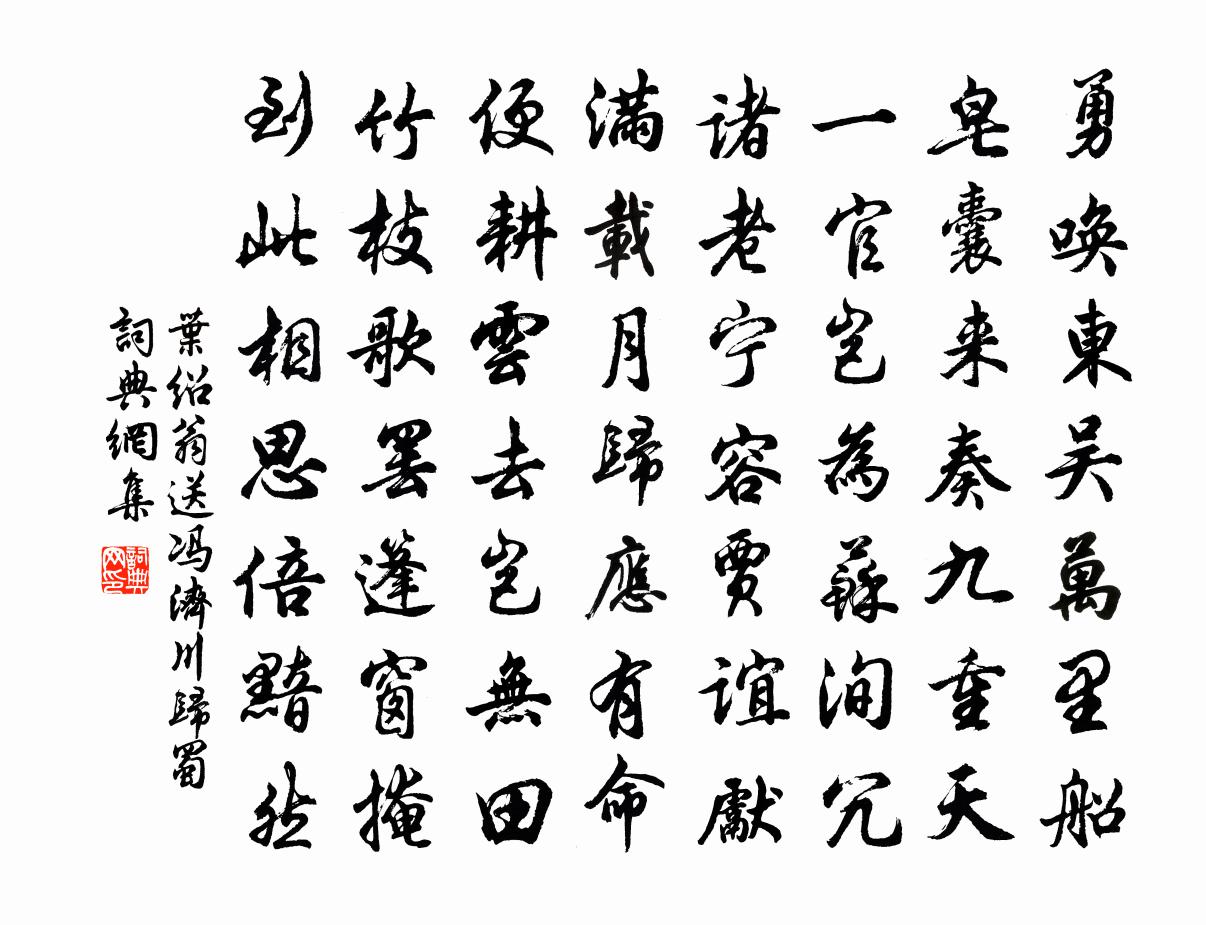 勇唤東吴萬里船
皂囊来奏九重天
一官岂為蘇洵冗
诸老宁容賈谊獻
满載月歸應有命
便耕雲去岂無田
竹枝歌罢蓬窗掩
到此相思倍黯然
葉绍翁送冯濟川歸蜀
詞典網集
詞典网印